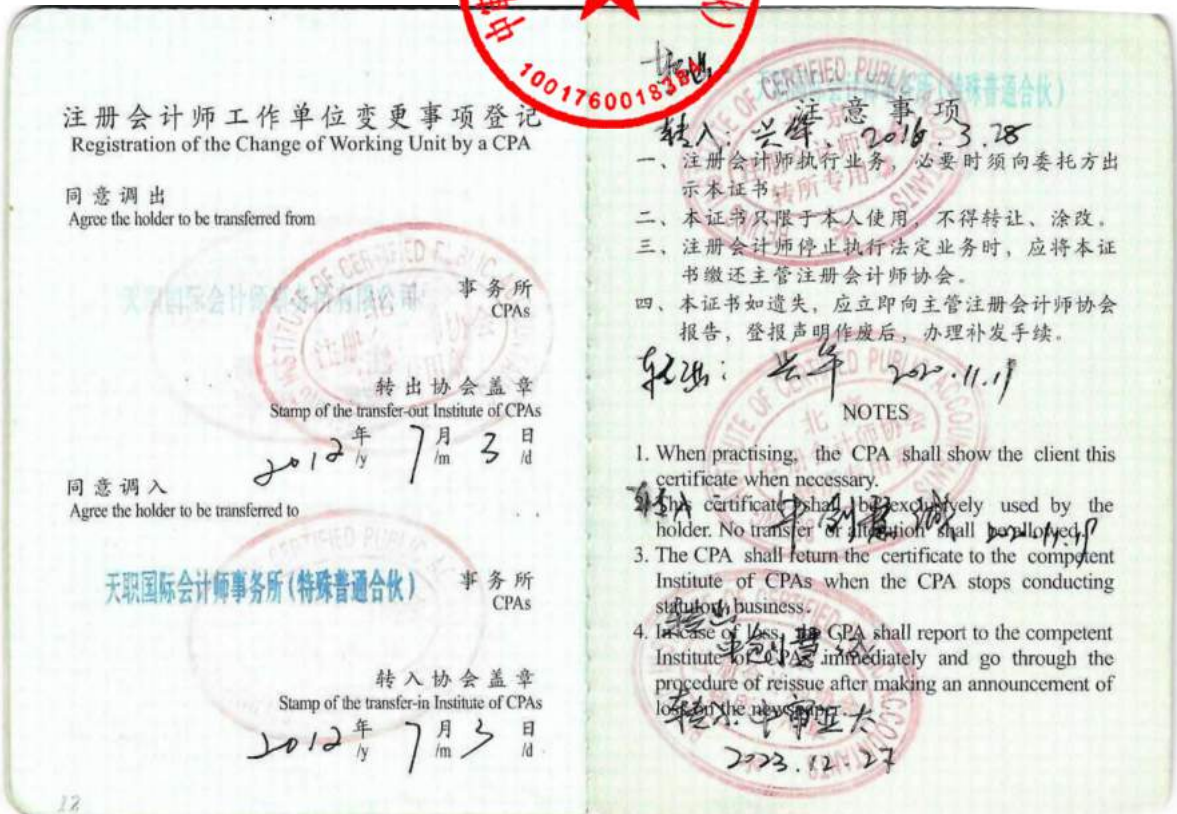 注册会计师工作单位变更事项登记
Registration of the Change of Working Unit by a CPA
同意调出
Agree the holder to be transferred from
天职国际会计师事务所有限公司
事务所
CPAs
转出协会盖章
Stamp of the transfer-out Institute of CPAs
2012年 7月 3日
/y /m /d
同意调入
Agree the holder to be transferred to
天职国际会计师事务所(特殊普通合伙)
事务所
CPAs
转入协会盖章
Stamp of the transfer-in Institute of CPAs
2012年 7月 3日
/y /m /d
12
转出
注意事项
转入: 兴华 2016.3.28
一、注册会计师执行业务,必要时须向委托方出
示本证书。
二、本证书只限于本人使用,不得转让、涂改。
三、注册会计师停止执行法定业务时,应将本证
书缴还主管注册会计师协会。
四、本证书如遗失,应立即向主管注册会计师协会
报告,登报声明作废后,办理补发手续。
转出: 兴华 2020.11.19
NOTES
1. When practising, the CPA shall show the client this
certificate when necessary.
2. This certificate shall be exclusively used by the
holder. No transfer or alteration shall be allowed.
转入
3. The CPA shall return the certificate to the competent
Institute of CPAs when the CPA stops conducting
statutory business.
4. In case of loss, the CPA shall report to the competent
Institute of CPAs immediately and go through the
procedure of reissue after making an announcement of
loss on the newspaper.
转出
转入: 中审亚太
2023.12.27